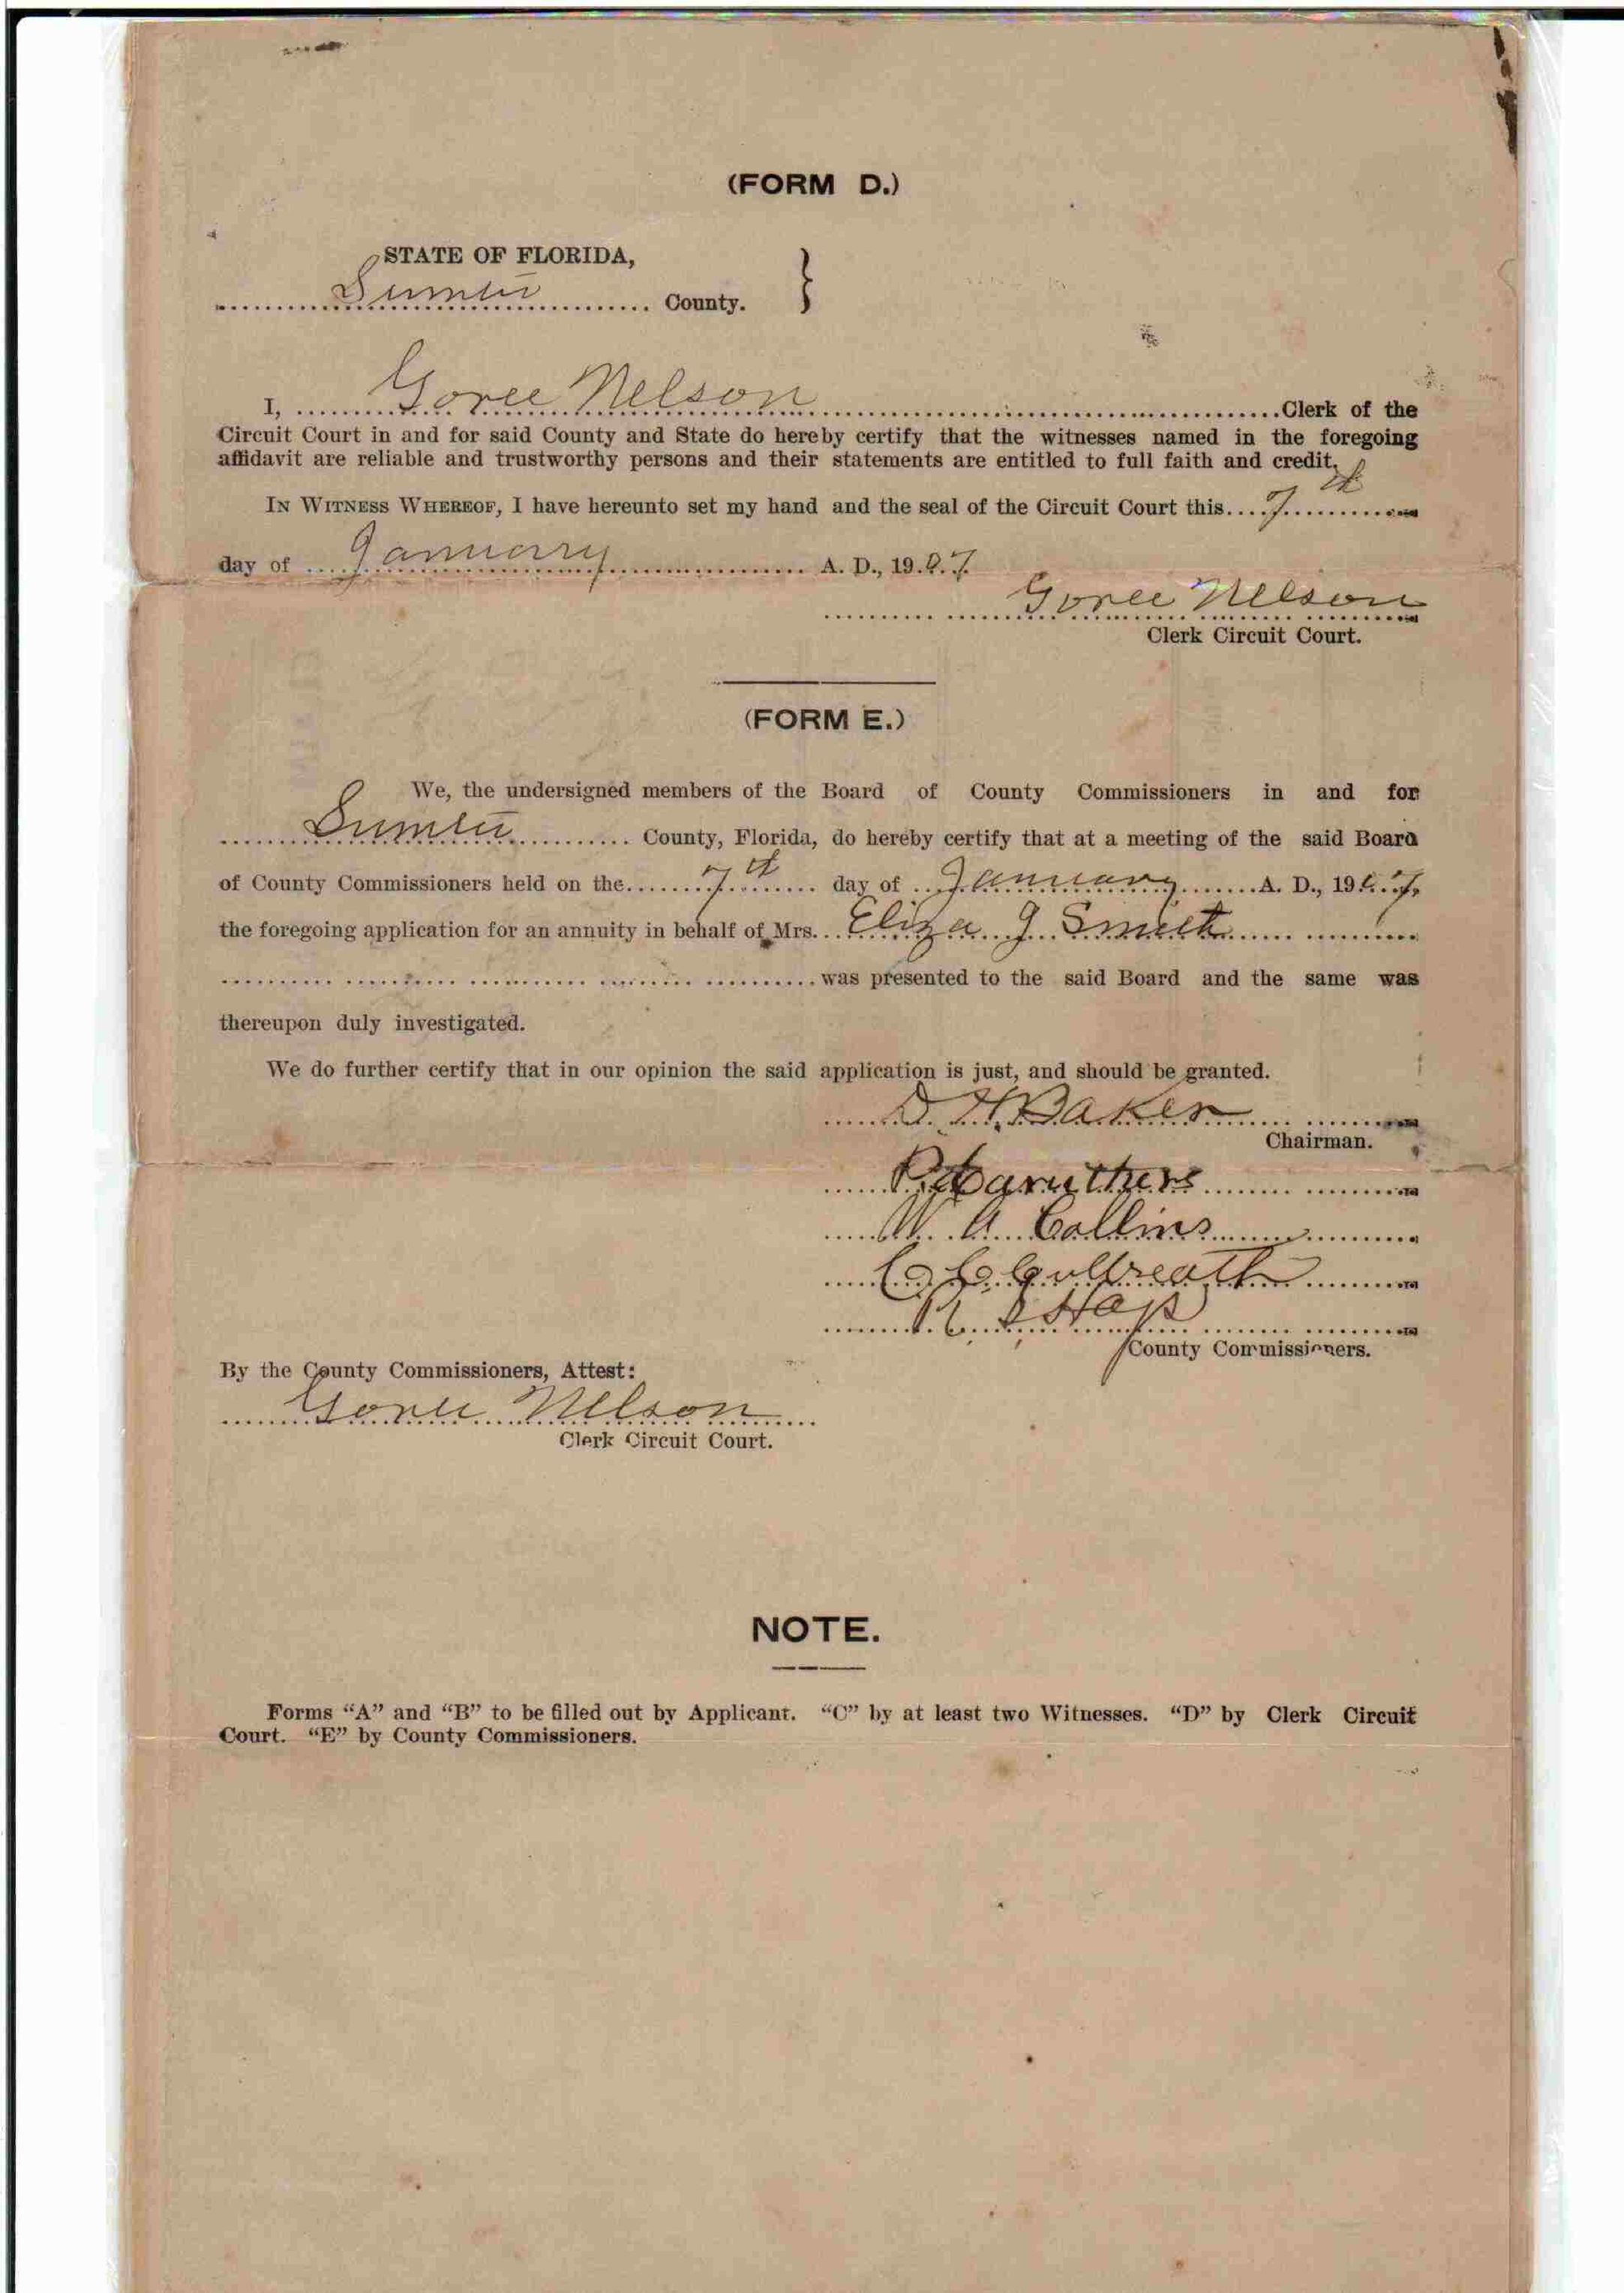 (FORM D.)
STATE OF FLORIDA,
Sumter County. }
I, Goree Nelson Clerk of the
Circuit Court in and for said County and State do hereby certify that the witnesses named in the foregoing
affidavit are reliable and trustworthy persons and their statements are entitled to full faith and credit.
IN WITNESS WHEREOF, I have hereunto set my hand and the seal of the Circuit Court this 7th
day of January A. D., 1907.
Goree Nelson
Clerk Circuit Court.
(FORM E.)
We, the undersigned members of the Board of County Commissioners in and for
Sumter County, Florida, do hereby certify that at a meeting of the said Board
of County Commissioners held on the 7th day of January A. D., 1907,
the foregoing application for an annuity in behalf of Mrs. Eliza J Smith
was presented to the said Board and the same was
thereupon duly investigated.
We do further certify that in our opinion the said application is just, and should be granted.
D. H. Baker
Chairman.
Caruthers
W. A. Collins
C C Gulbreath
County Commissioners.
By the County Commissioners, Attest:
Goree Nelson
Clerk Circuit Court.
NOTE.
Forms “A” and “B” to be filled out by Applicant. “C” by at least two Witnesses. “D” by Clerk Circuit
Court. “E” by County Commissioners.